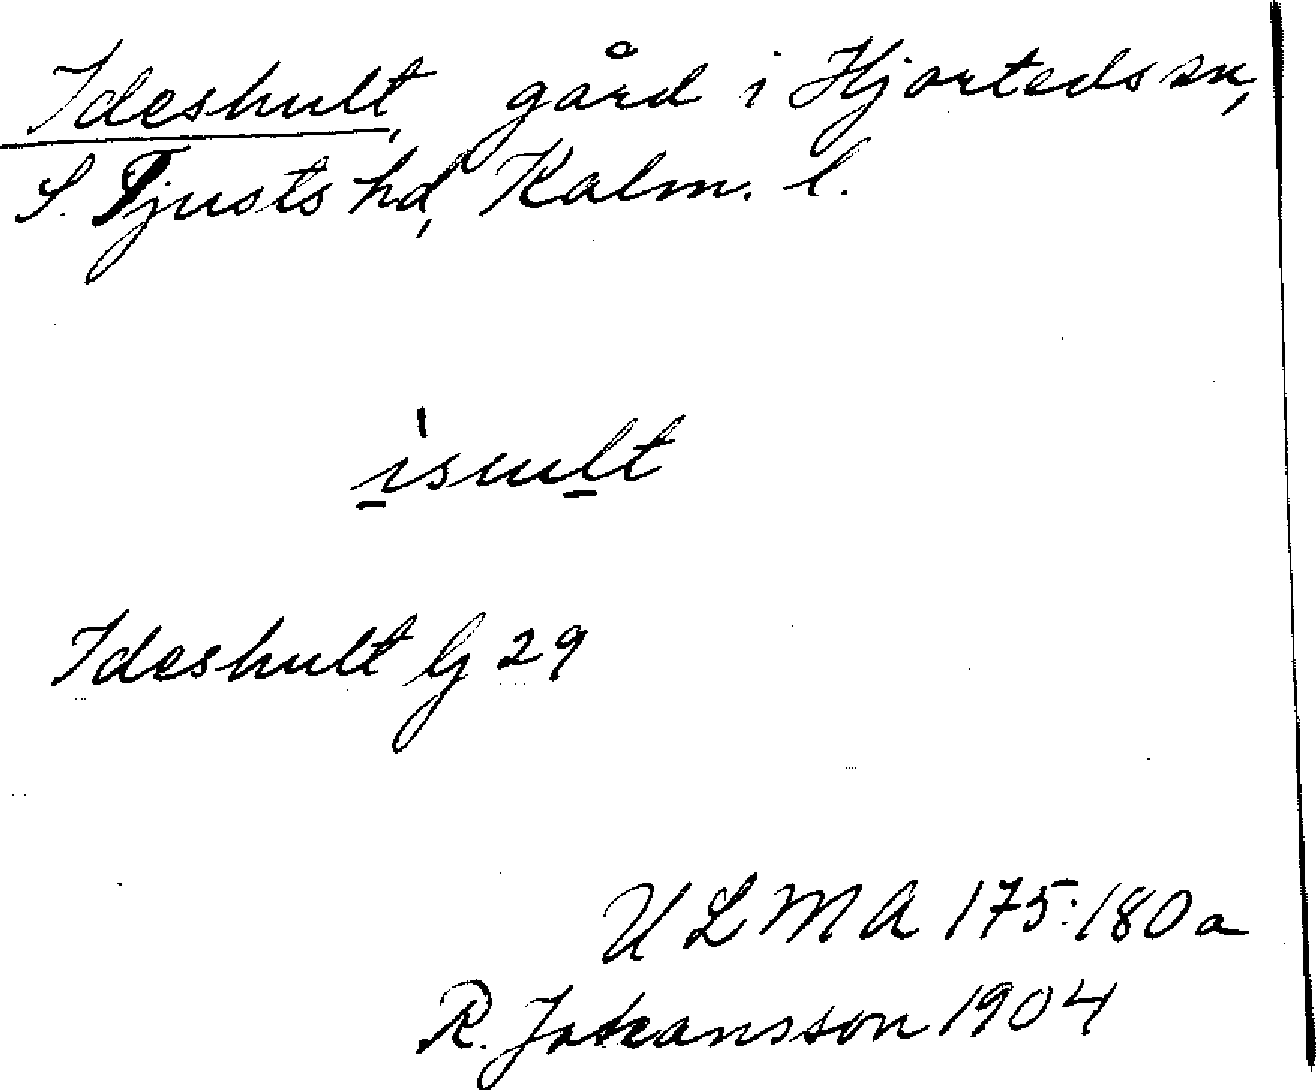 Ideshult, gård i Hjorteds sn,
S. Tjusts hd, Kalm. l.
isult
Ideshult Gj 29
ULMA 175:180a
R. Johansson 1904